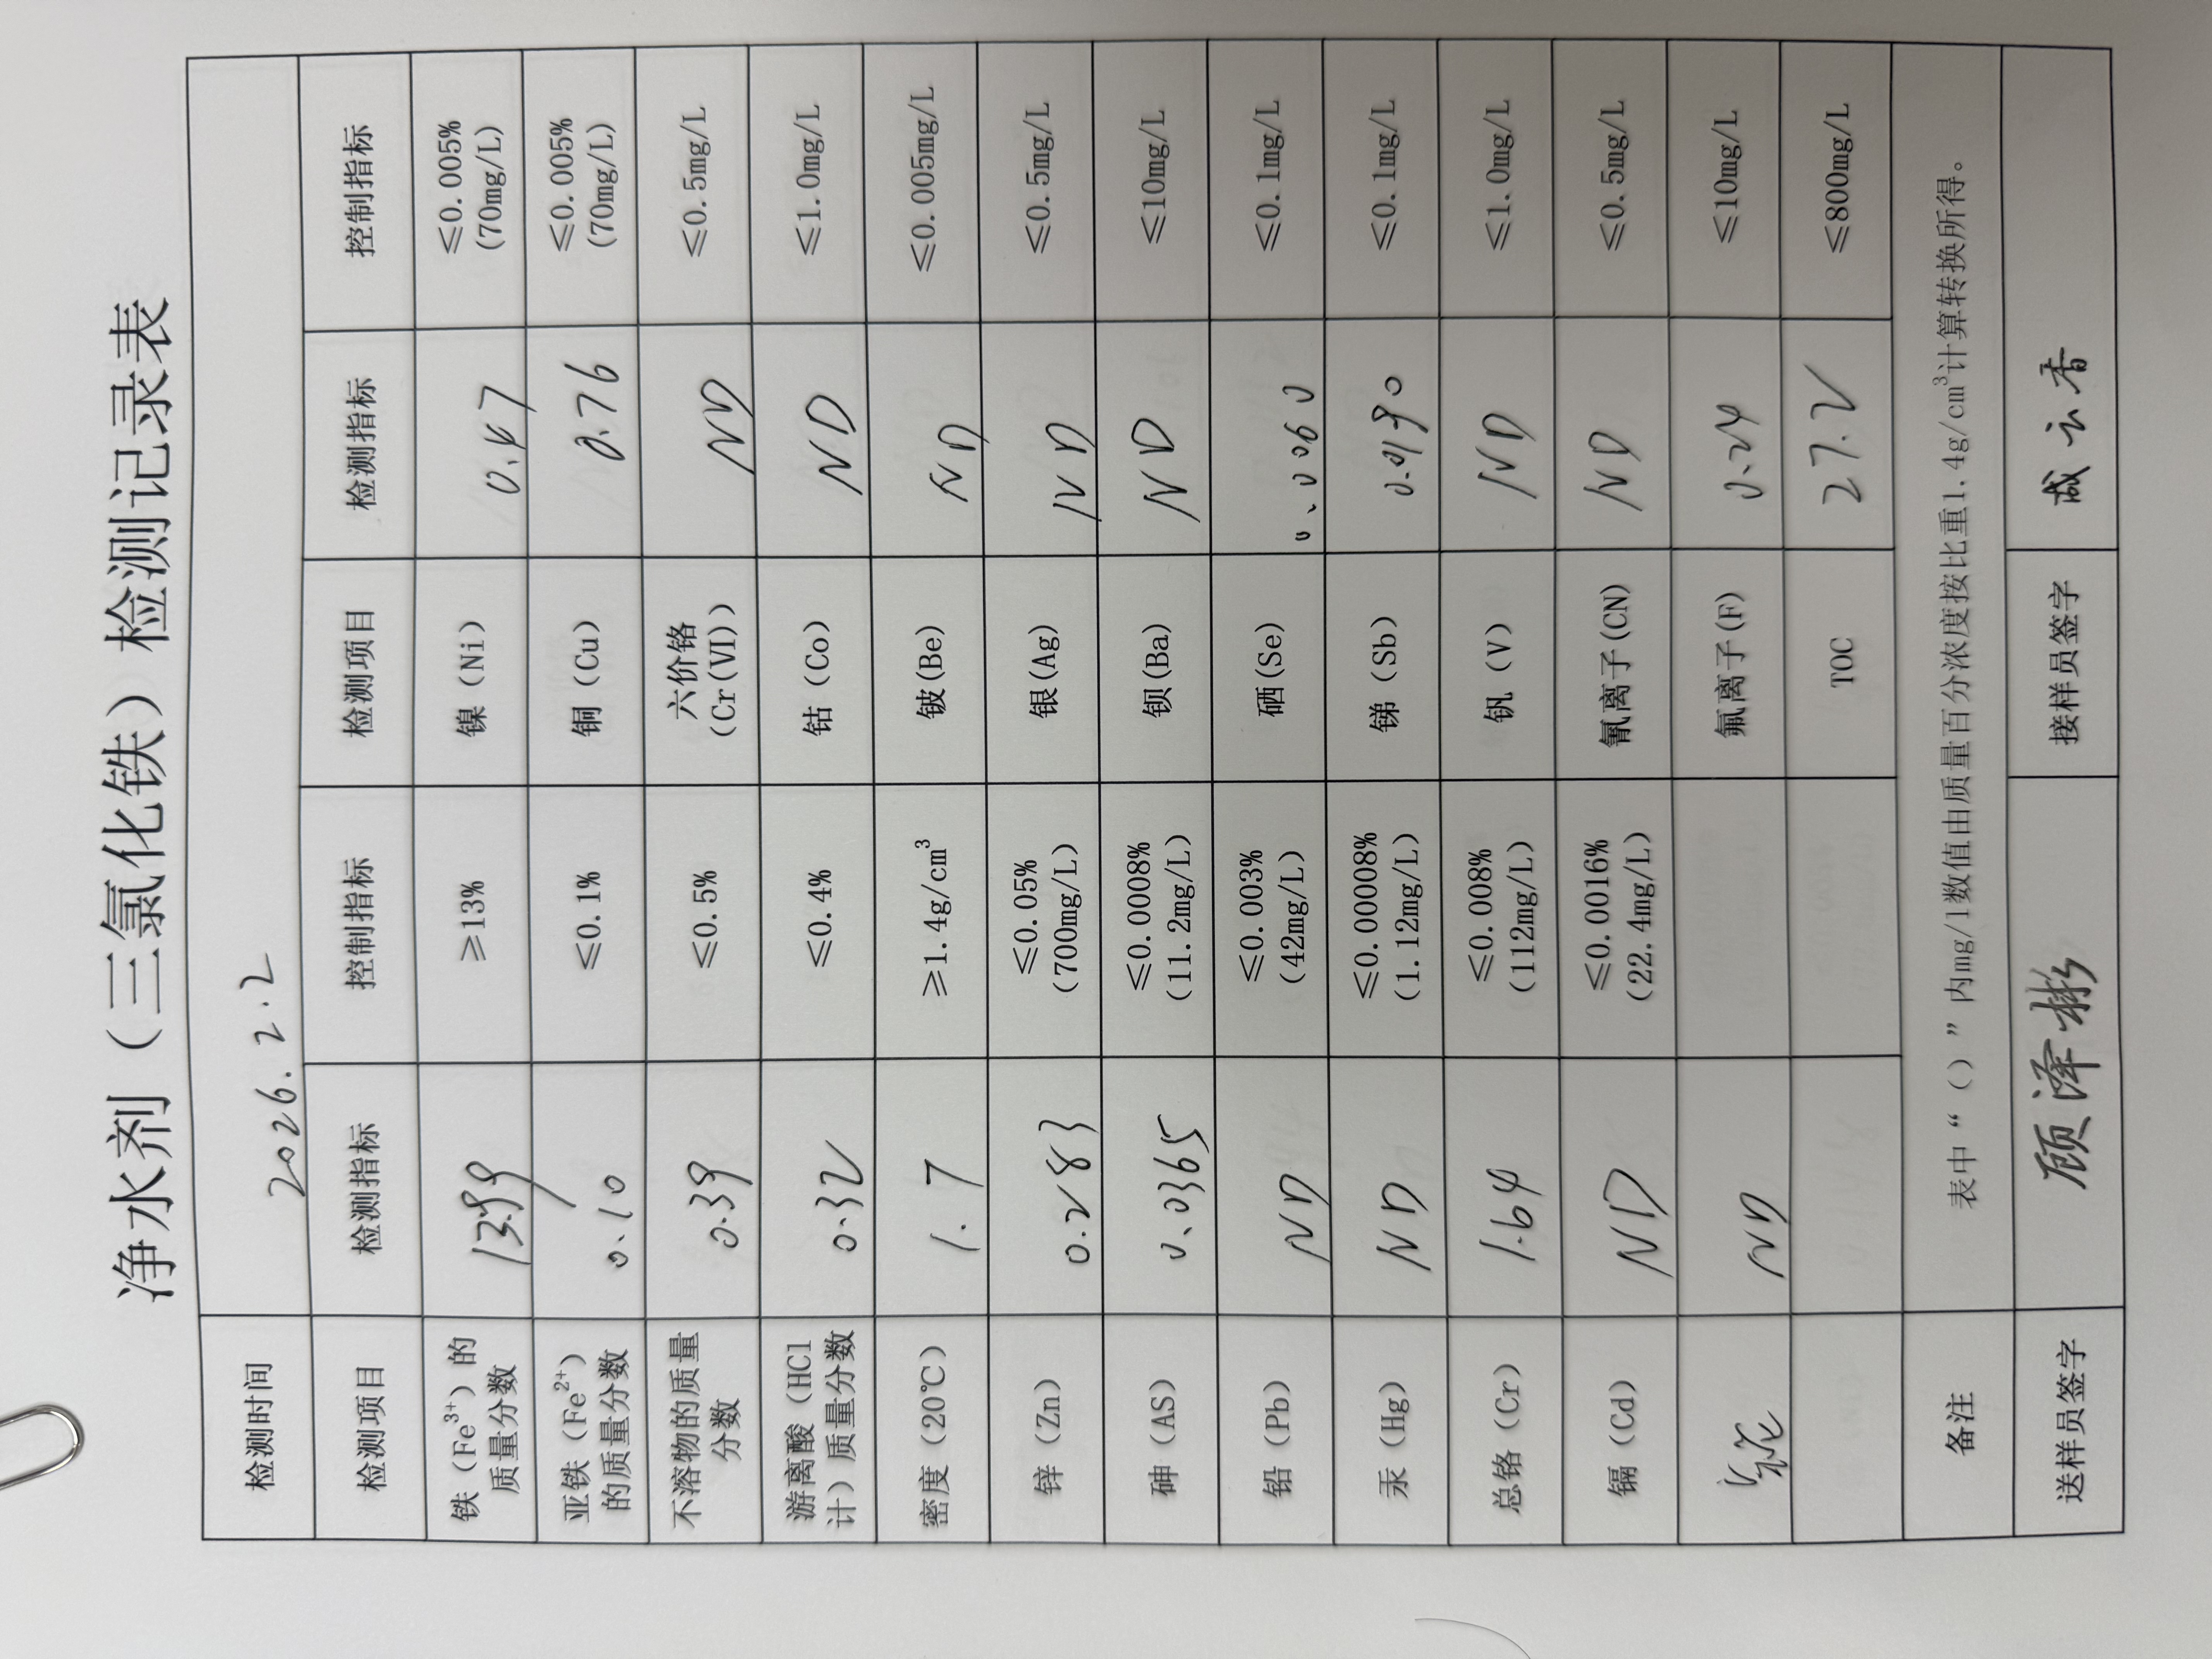 净水剂（三氯化铁）检测记录表
检测时间 2026.2.2
检测项目 检测指标 控制指标 检测项目 检测指标 控制指标
铁（Fe³⁺）的质量分数 13.99 ≥13% 镍（Ni） 0.47 ≤0.005% (70mg/L)
亚铁（Fe²⁺）的质量分数 0.10 ≤0.1% 铜（Cu） 0.76 ≤0.005% (70mg/L)
不溶物的质量分数 0.39 ≤0.5% 六价铬（Cr(VI)） ND ≤0.5mg/L
游离酸（HCl计）质量分数 0.32 ≤0.4% 钴（Co） ND ≤1.0mg/L
密度（20℃） 1.7 ≥1.4g/cm³ 铍(Be) ND ≤0.005mg/L
锌（Zn） 0.283 ≤0.05% (700mg/L) 银(Ag) ND ≤0.5mg/L
砷（AS） 0.0365 ≤0.0008% (11.2mg/L) 钡(Ba) ND ≤10mg/L
铅（Pb） ND ≤0.003% (42mg/L) 硒(Se) 0.0060 ≤0.1mg/L
汞（Hg） ND ≤0.00008% (1.12mg/L) 锑（Sb） 0.0190 ≤0.1mg/L
总铬（Cr） 1.64 ≤0.008% (112mg/L) 钒（V） ND ≤1.0mg/L
镉（Cd） ND ≤0.0016% (22.4mg/L) 氰离子(CN) ND ≤0.5mg/L
ND 氟离子(F) 0.24 ≤10mg/L
TOC 27.2 ≤800mg/L
备注 表中“（）”内mg/l数值由质量百分浓度按比重1.4g/cm³计算转换所得。
送样员签字 顾泽彬 接样员签字 云香